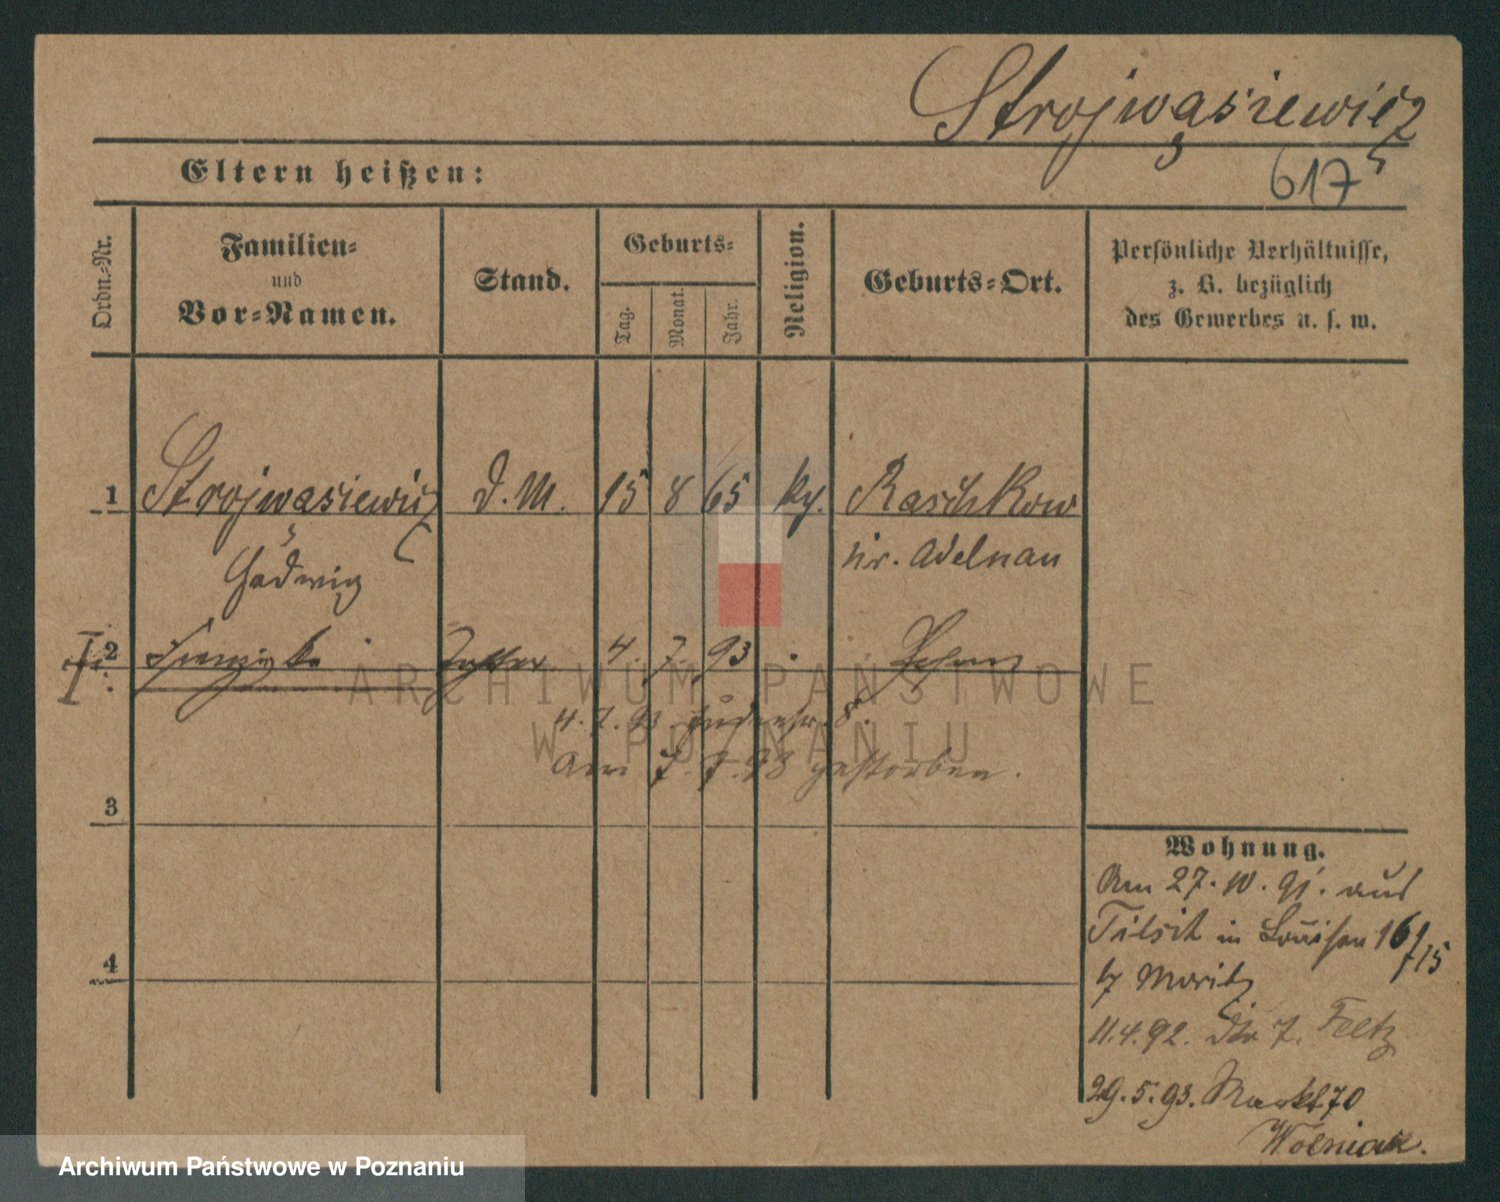 Strojwąsiewicz
617
Eltern heißen:
Ordn.-Nr.
Familien-
und
Vor-Namen.
Stand.
Geburts-
Tag.
Monat.
Jahr.
Religion.
Geburts-Ort.
Persönliche Verhältnisse,
z. B. bezüglich
des Gewerbes u. s. w.
1 Strojwąsiewicz D. M. 15 8 65 kg. Raschkow
Hedwig Kr. Adelnau
2 Tochter 4. 7. 93 Posen
4. 7. 93. Judenstr. 8.
am 7. 7. 93 gestorben.
3
4
Wohnung.
Am 27. 10. 91. aus
Tilsit in Louisen 16/15
by Moritz
11.4.92. 7.
29.5.93. Markt 70
Wolniak.
ARCHIWUM PAŃSTWOWE
W POZNANIU
Archiwum Państwowe w Poznaniu